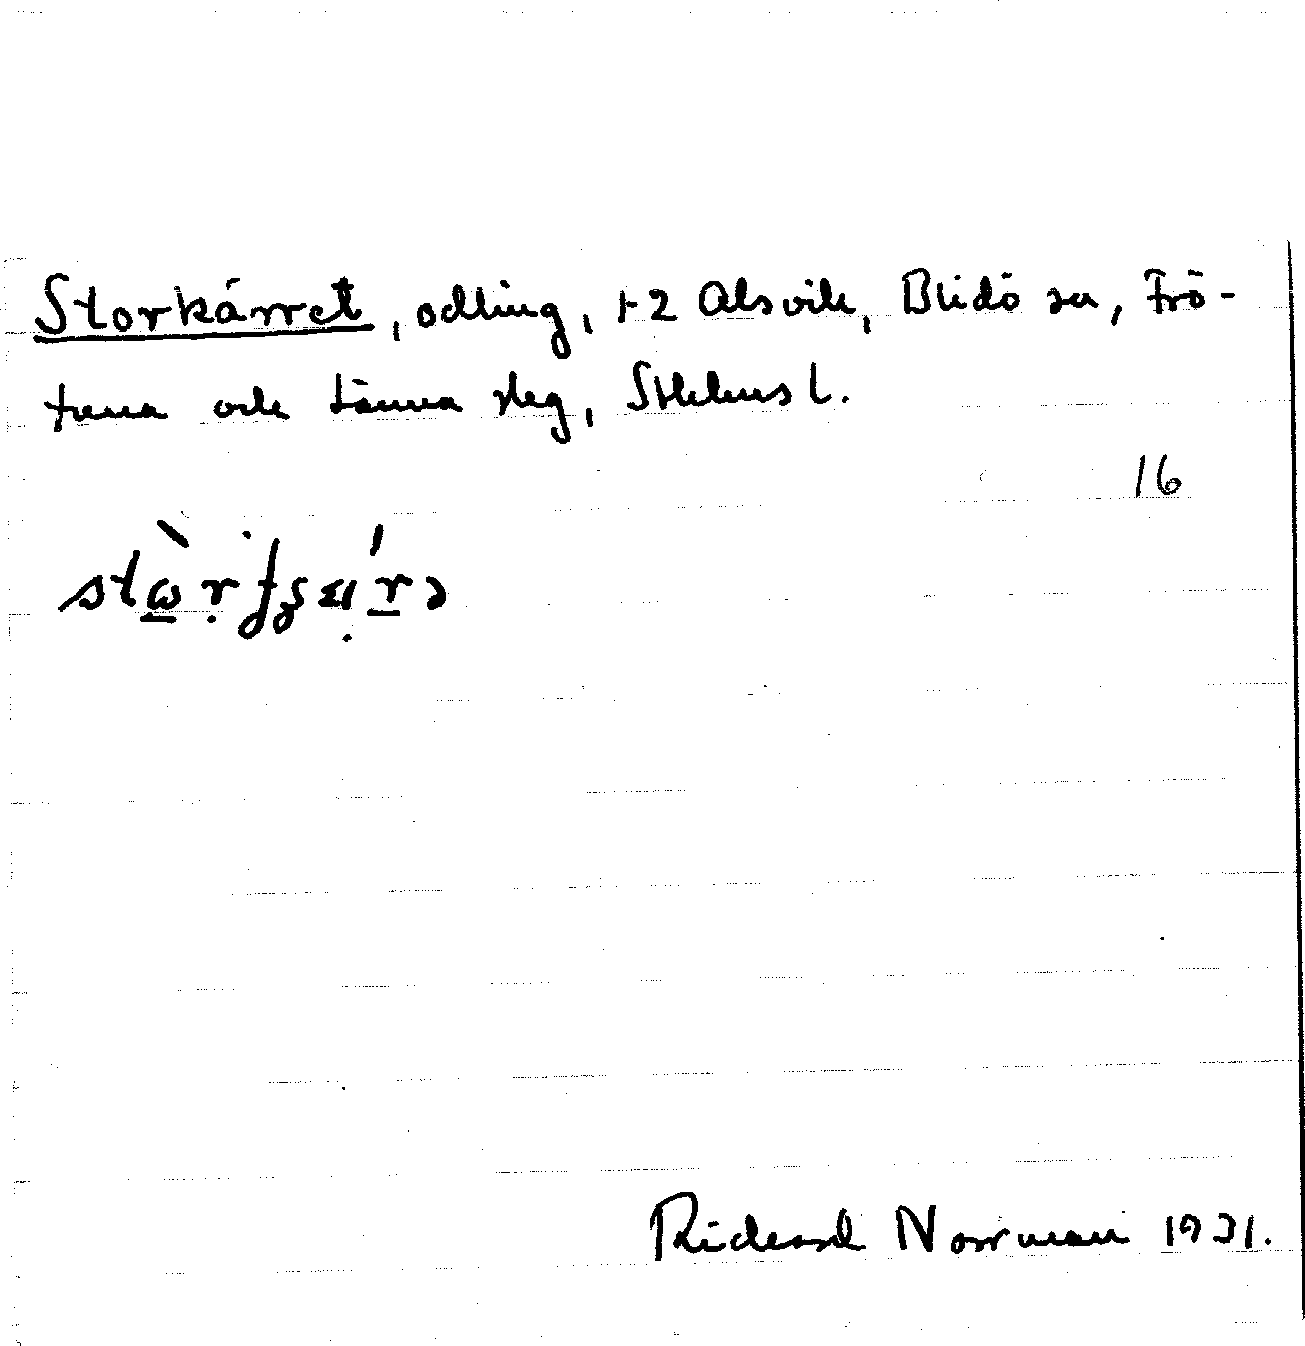 Storkärret, odling, t 2 Alsvik, Blidö sn, Frö-
tuna och Länna skg, Sthlms l.
16
Richard Norrman 1931.